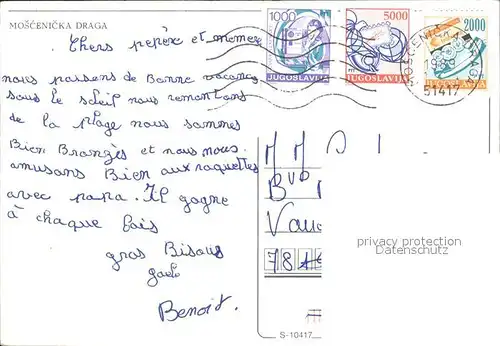 MOŠĆENIČKA DRAGA
1000
JUGOSLAVIJA
5000
JUGOSLAVIJA
2000
51417
Chers pepère et memere
nous passons de Bonne vacances
sous le soleil nous remontons
de la plage nous sommes
Bien Bronzés et nous nous
amusons Bien aux raquettes
avec papa. Il gagne
à chaque fois
gros Bisous
Gael
Benoit.
M M
Bvd
78
privacy protection
Datenschutz
S-10417